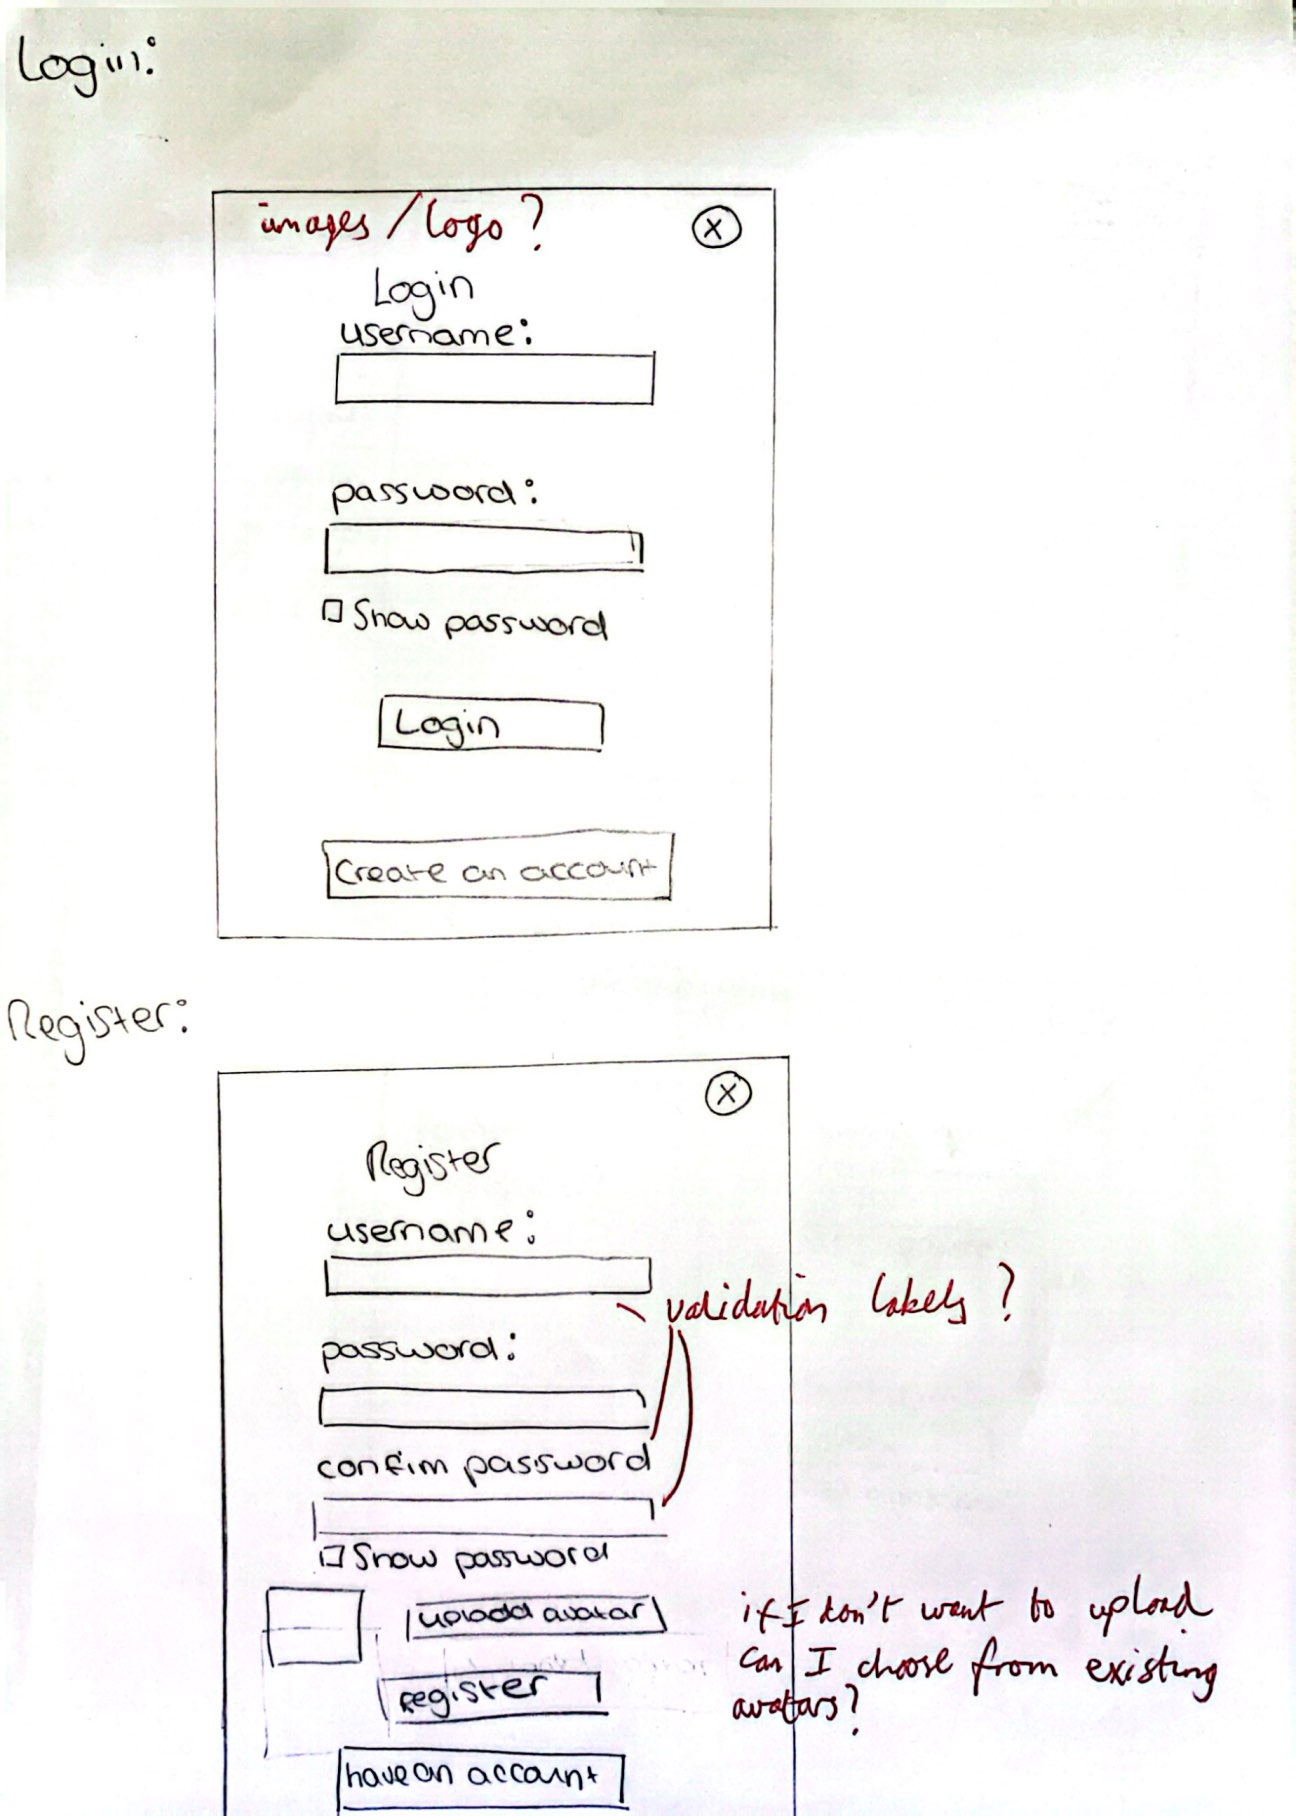 Login:
images / logo ?
X
Login
username:
password:
Show password
Login
Create an account
Register:
X
Register
username:
validation labels ?
password:
confim password
Show password
upload avatar
if I don't want to upload
can I choose from existing
avatars?
register
have an account